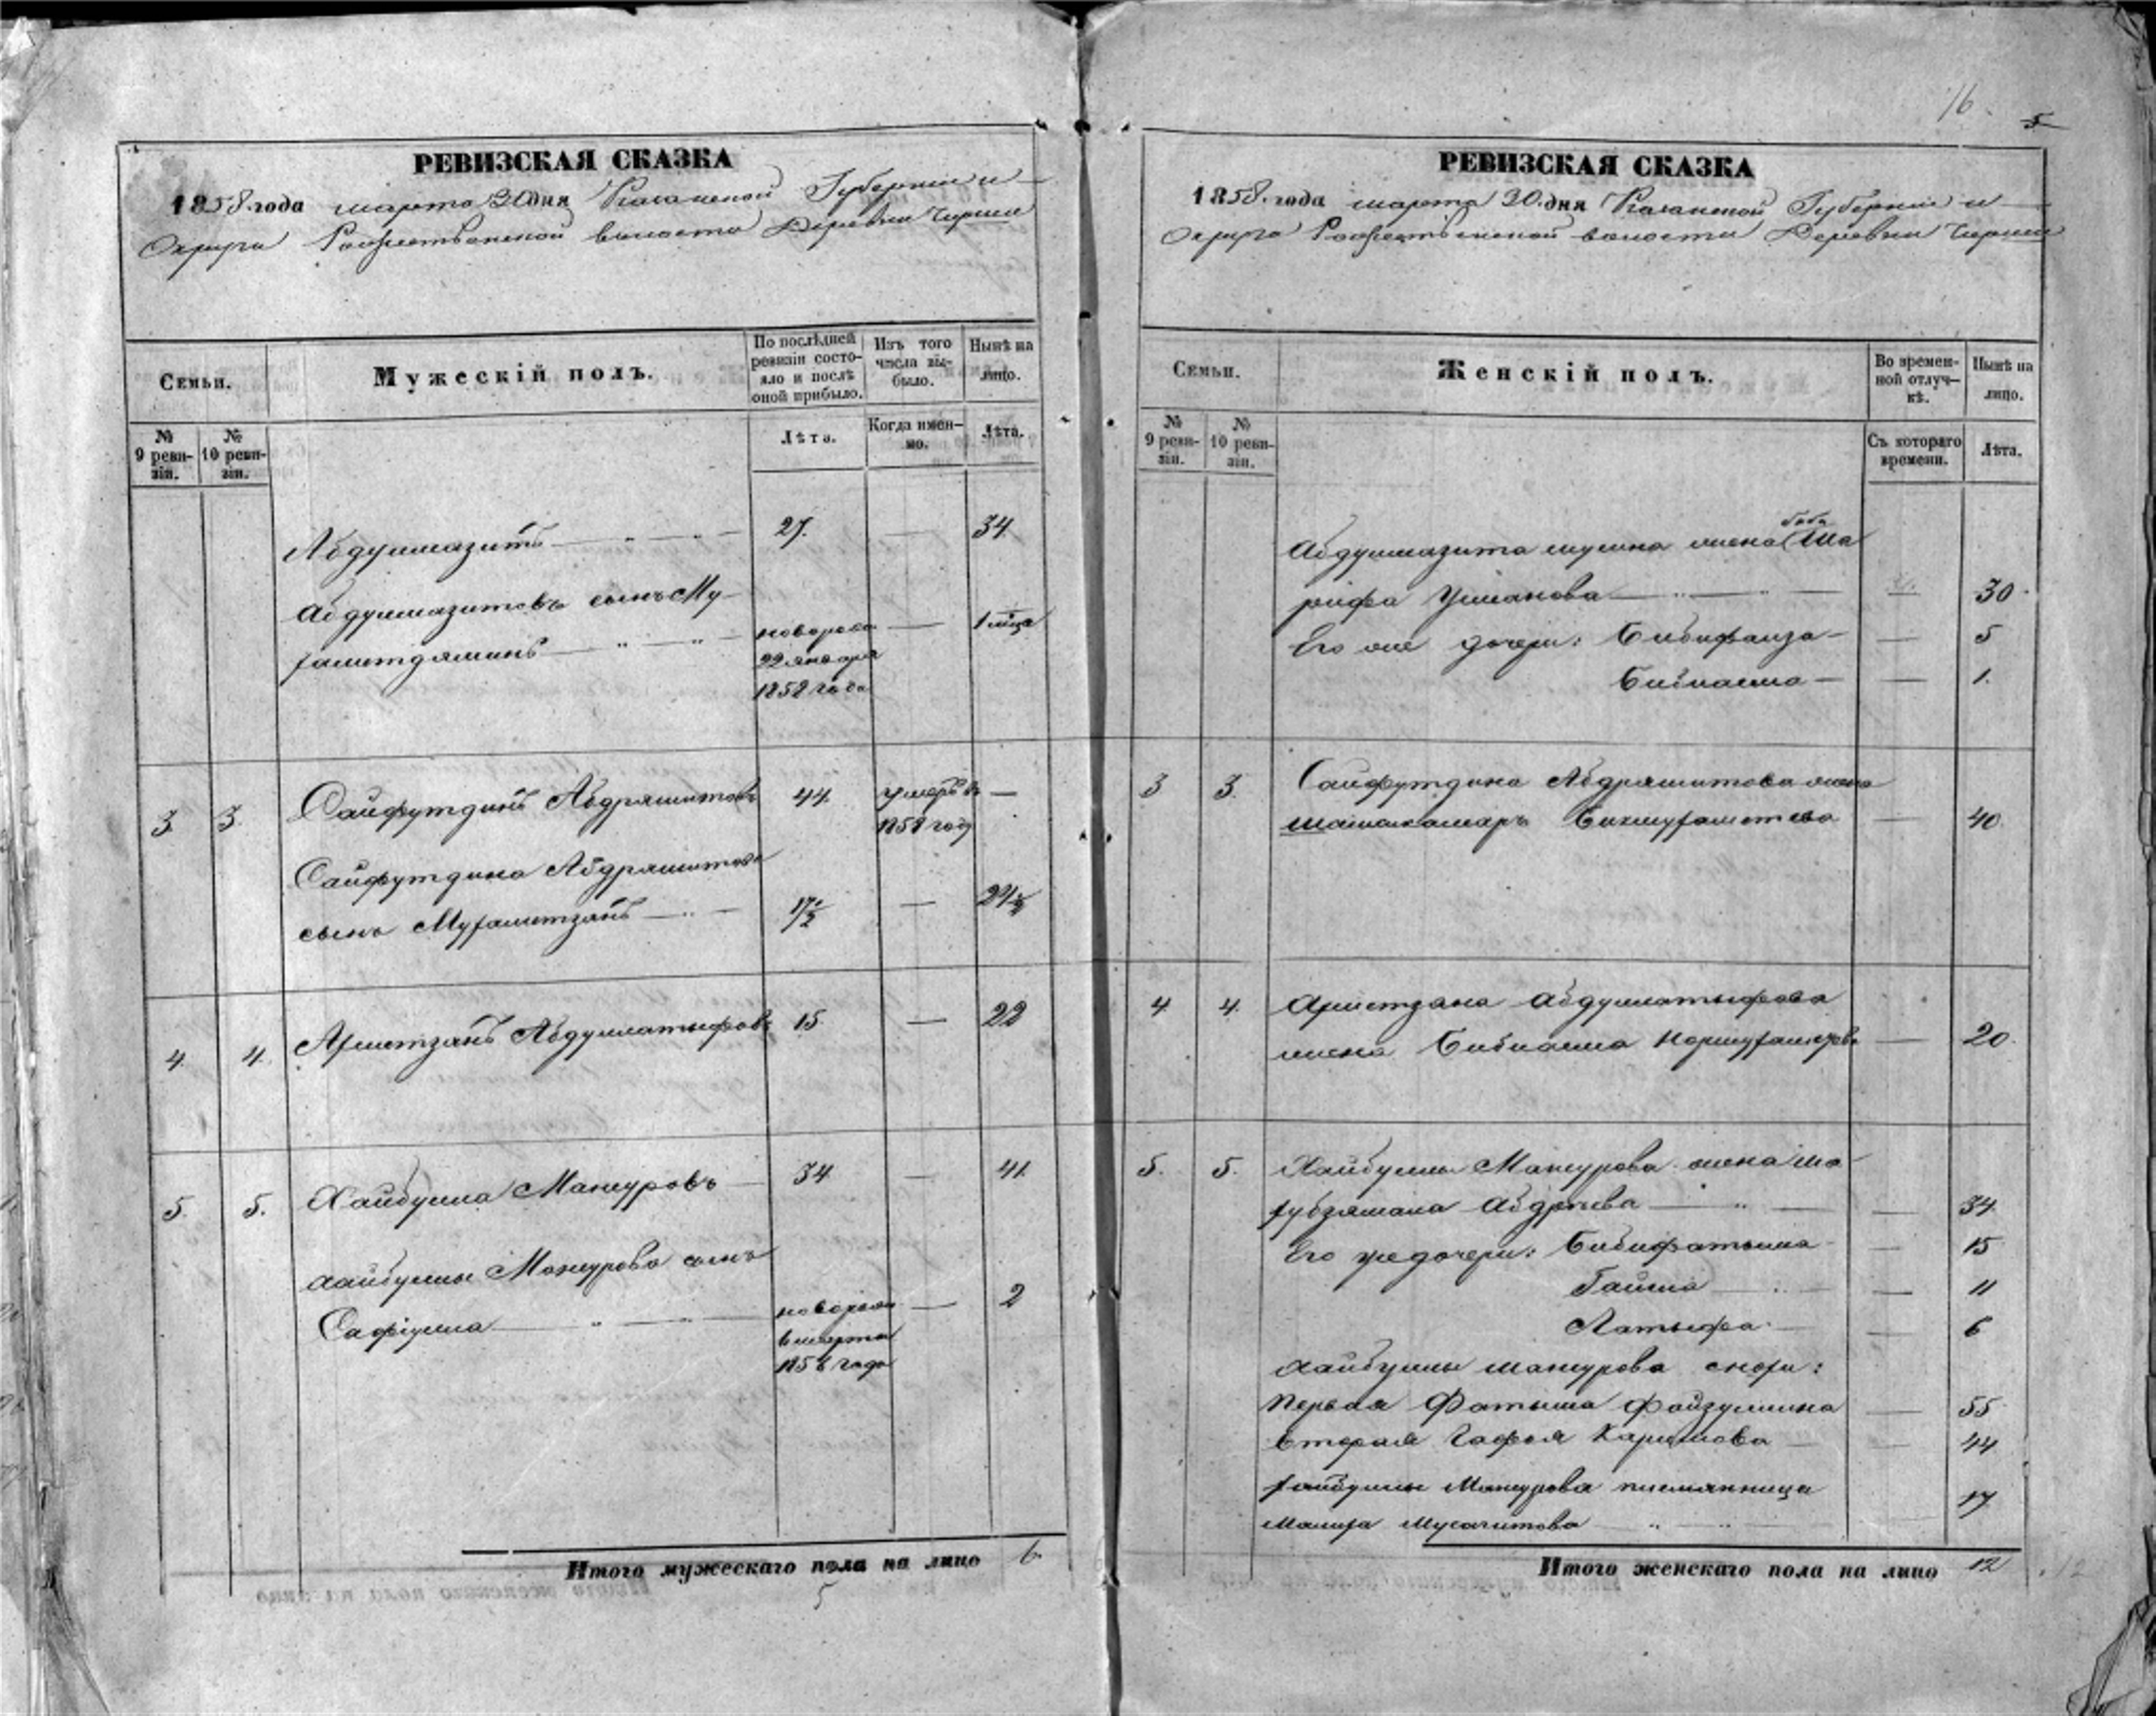 16
5
РЕВИЗСКАЯ СКАЗКА
1858 года марта 30 дня Казанской Губернии и
Округа Рождественской волости Деревни Чирши
Семьи.
Мужескій полъ.
По послѣдней ревизіи состояло и послѣ оной прибыло.
Изъ того числа выбыло.
Нынѣ на лицо.
№ 9 ревизіи.
№ 10 ревизіи.
Лѣта.
Когда именно.
Лѣта.
Абдулмазитъ 27. — 34
Абдулмазитовъ сынъ Му-
хаметдяминъ новорож — 1 мца
22 января
1858 года
3 3 Сайфутдинъ Абдряшитовъ 44 умеръ въ —
1858 году
Сайфутдина Абдряшитова
сынъ Мухаметзянъ 17½ — 24½
4. 4. Ахметзянъ Абдуллатыфовъ 15 — 22
5. 5. Хайбулла Мансуровъ 34 — 41
Хайбуллы Мансурова сынъ
Сафіулла новорож — 2
в марта
1856 года
Итого мужескаго пола на лицо 6.
5
РЕВИЗСКАЯ СКАЗКА
1858 года марта 30 дня Казанской Губернии и
Округа Рождественской волости Деревни Чирши
Семьи.
Женскій полъ.
Во временной отлучкѣ.
Нынѣ на лицо.
№ 9 ревизіи.
№ 10 ревизіи.
Съ котораго времени.
Лѣта.
Абдулмазита жена Биби Ша
рифа Усманова — 30
Его же дочери: Бибифаиза — 5
Бибиасма — 1.
3 3. Сайфутдина Абдряшитова жена
Шамсикамаръ Бикмухаметева — 40
4 4. Ахметзяна Абдуллатыфова
жена Бибиасма — 20
5. 5. Хайбуллы Мансурова жена Ма
хубзямала — 34
Его же дочери: Бибифатыма — 15
Гайша — 11
Латыфа — 6
Хайбуллы Мансурова снохи:
первая Фатыма Файзуллина — 55
вторая Гафия Каримова — 44
Хайбуллы Мансурова племянница
17
Итого женскаго пола на лицо 12
12